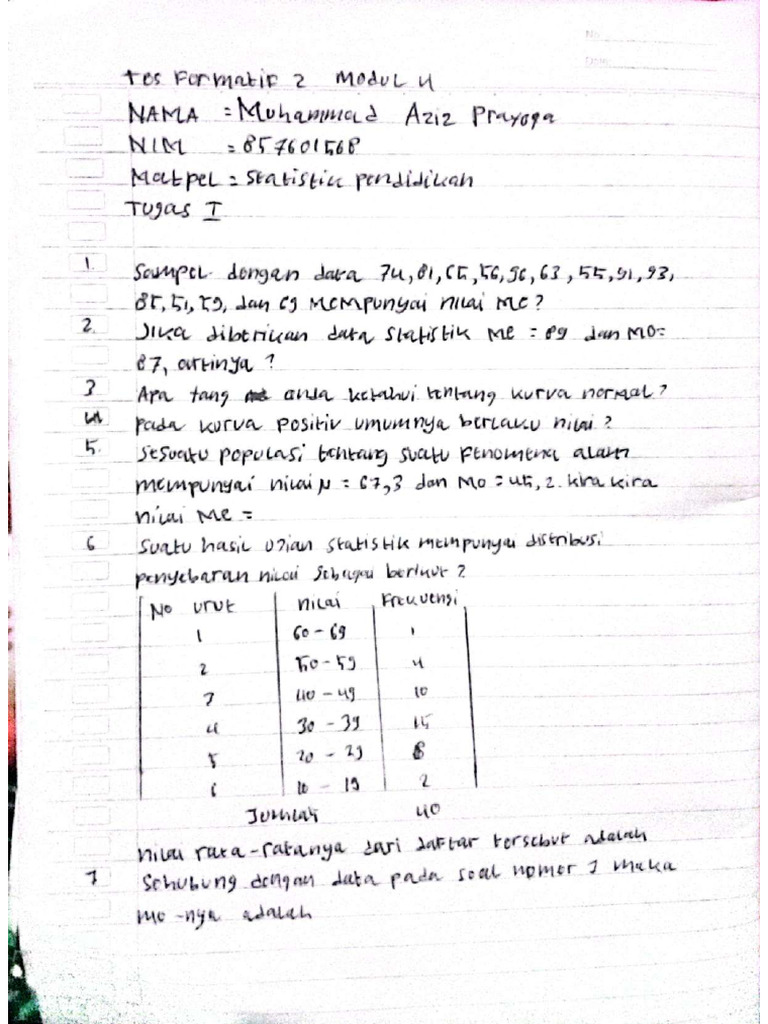 No
Date
Tes Formatif 2 Modul 4
NAMA = Muhammad Aziz Prayoga
NIM = 857601568
Matpel = Statistik pendidikan
Tugas I
1. Sampel dengan data 74, 81, 65, 56, 96, 63, 55, 91, 93,
85, 51, 59, dan 69 mempunyai nilai Me?
2. Jika diberikan data statistik Me = 89 dan Mo =
87, artinya ?
3 Apa tang anda ketahui tentang kurva normal?
4 pada kurva positiv umumnya berlaku nilai ?
5. Sesuatu populasi tentang suatu Fenomena alam
mempunyai nilai μ = 67,3 dan Mo = 45,2. kira kira
nilai Me =
6 Suatu hasil ujian statistik mempunyai distribusi
penyebaran nilai sebagai berikut ?
No urut nilai Frekuensi
1 60 - 69 1
2 50 - 59 4
3 40 - 49 10
4 30 - 39 15
5 20 - 29 8
6 10 - 19 2
Jumlah 40
nilai rata-ratanya dari daftar tersebut adalah
7 Sehubung dengan data pada soal nomer 1 maka
mo-nya adalah